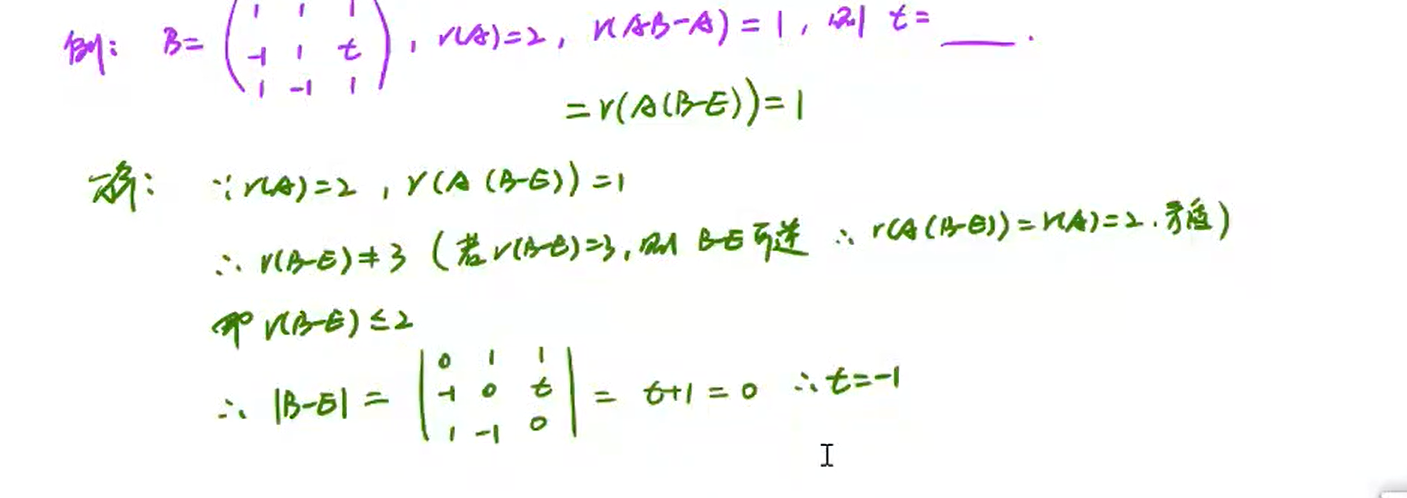 例: B= ( 1 1 1 ; -1 1 t ; 1 -1 1 ), r(A)=2, r(AB-A)=1, 则 t=____.
=r(A(B-E))=1
解: ∵r(A)=2, r(A(B-E))=1
∴r(B-E)≠3 (若r(B-E)=3, 则 B-E可逆 ∴r(A(B-E))=r(A)=2.矛盾)
即 r(B-E)≤2
∴|B-E|= | 0 1 1 ; -1 0 t ; 1 -1 0 | = t+1=0 ∴t=-1